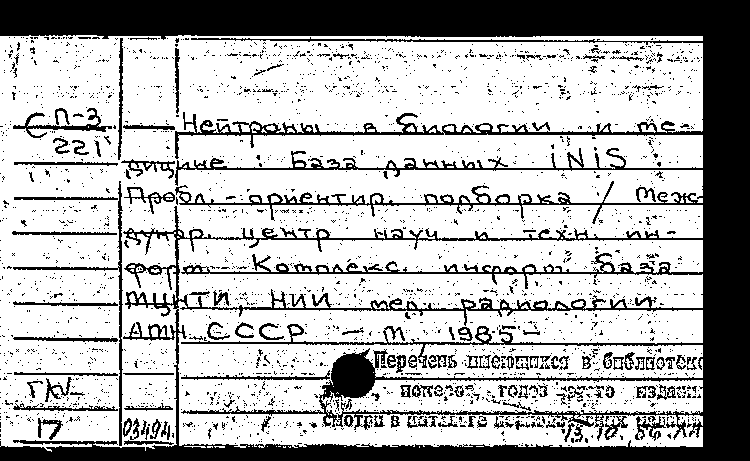 С П-3
221
Нейтроны в биологии и ме-
дицине : База данных iNiS.
Пробл.-ориентир. подборка / Меж-
дунар. центр науч. и техн. ин-
форм. Комплекс. информ. база
МЦНТИ, НИИ мед. радиологии
АМН СССР — М., 1985 —
Перечень имеющихся в библиотеке
, номеров, годов издания
смотри в каталоге
03494.
17
13.10.86